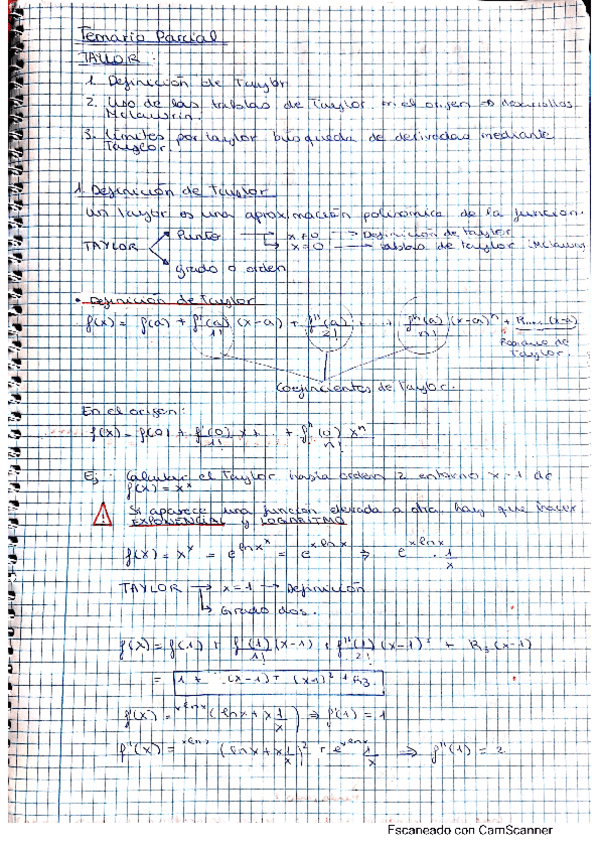 Temario Parcial
TAYLOR:
1. Definición de Taylor
2. Uso de las tablas de Taylor en el origen ⇒ desarrollos
Mclaurin.
3. Límites por taylor búsqueda de derivadas mediante
Taylor.
1. Definición de Taylor
Un taylor es una aproximación polinomica de la funcion.
TAYLOR Punto → x≠0 → Definición de taylor
x=0 → tablas de taylor (Mclaurin)
grado o orden
• Definición de taylor
f(x) = f(a) + f'(a)/1! (x-a) + f''(a)/2! ... + fⁿ(a)/n! (x-a)ⁿ + R... (x-a)
Residuo de
Taylor.
Coeficientes de Taylor.
En el origen:
f(x) = f(0) + f'(0)/1! x + ... + fⁿ(0)/n! xⁿ
Ej: Calcular el Taylor hasta orden 2 entorno x=1 de
f(x) = xˣ
Si aparece una función elevada a otra, hay que hacer
EXPONENCIAL y LOGARITMO
f(x) = xˣ = e^(ln xˣ) = e^(x ln x) ⇒ e^(x ln x) · 1/x
TAYLOR → x=1 → Definición
Grado dos.
f(x) = f(1) + f'(1)/1! (x-1) + f''(1)/2! (x-1)² + R₃ (x-1)
= 1 + (x-1) + (x-1)² + R₃
f'(x) = e^(x ln x) (ln x + x 1/x) ⇒ f'(1) = 1
f''(x) = e^(x ln x) (ln x + x 1/x)² + e^(x ln x) 1/x ⇒ f''(1) = 2
Escaneado con CamScanner